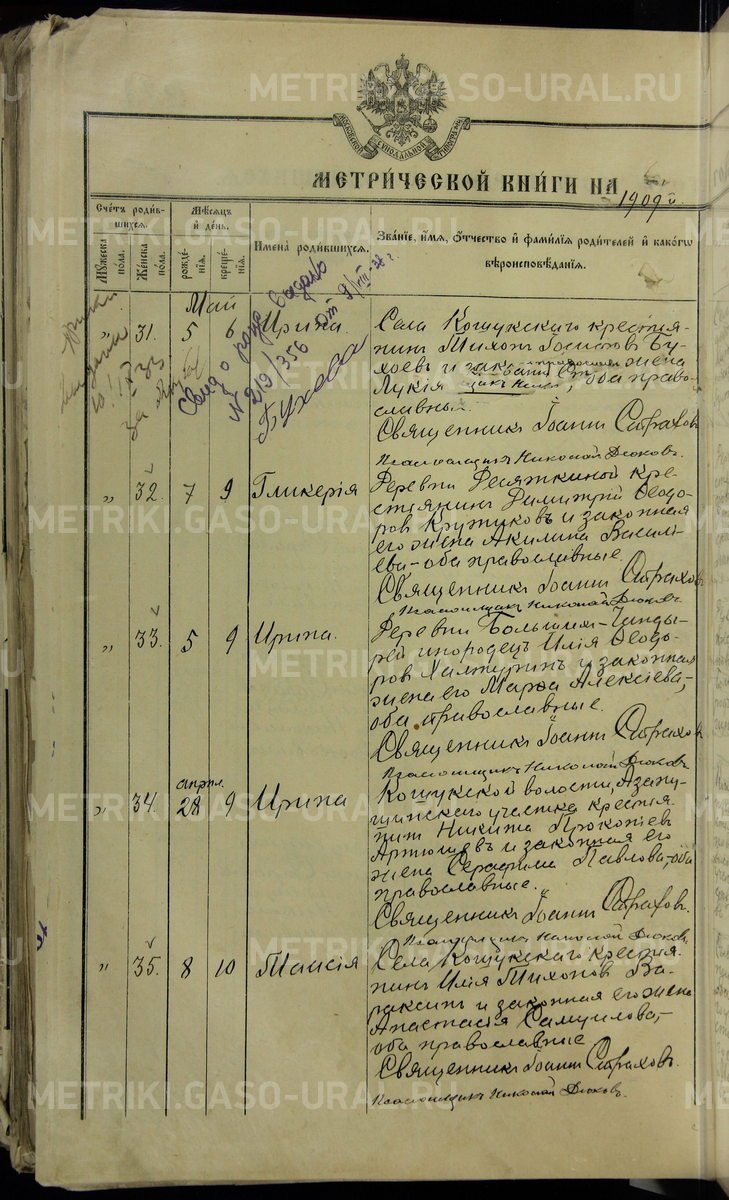 МЕТРИ́ЧЕСКОЙ КНИ́ГИ НА 1909
Сче́тъ роди́в-
шихся.
Му́жеска по́ла.
Же́нска по́ла.
Мѣ́сяцъ
и҆ де́нь.
рожде́-
нія.
креще́-
нія.
Имена̀ роди́вшихся.
Зва́нїе, и҆́мя, ѻ҆́тчество и҆ фами́лїя роди́телей и҆ како́гѡ
вѣроисповѣ́данїя.
Май
„ 31. 5 6 Ирина.
Села Кошукского крестья-
нинъ Тихонъ
Лукія оба право-
славны.
Священникъ Іоаннъ Страховъ
Псаломщикъ Николай Дюковъ.
Свид. о рожд. выдано
№ 219/356 от 9/VIII-32 г.
Бухова
„ 32. 7 9 Гликерія
Деревни Десяткиной кре-
стьянинъ Димитрій Ѳеодо-
ровъ Кружковъ и законная
его жена Акилина Василь-
ева-оба православные.
Священникъ Іоаннъ Страховъ
Псаломщикъ Николай Дюковъ
„ 33. 5 9 Ирина.
Деревни Большихъ-Чинды-
рей инородецъ Илія Ѳеодо-
ровъ Халтуринъ и законная
жена его Марѳа Алексіева,-
оба православные.
Священникъ Іоаннъ Страховъ
Псаломщикъ Николай Дюковъ
апрѣл.
„ 34. 28 9 Ирина
Кошукской волости, Азапу-
шинскаго участка крестья-
нинъ Никита Прокопіевъ
Артюшевъ и законная его
жена Серафима Павлова,-оба
православные.
Священникъ Іоаннъ Страховъ.
Псаломщикъ Николай Дюковъ
„ 35. 8 10 Таисія
Села Кошукского крестья-
нинъ Илія Тихоновъ Ва-
раксинъ и законная его жена
Анастасія Самуилова,-
оба православные
Священникъ Іоаннъ Страховъ.
Псаломщикъ Николай Дюковъ.
METRIKI.GASO-URAL.RU